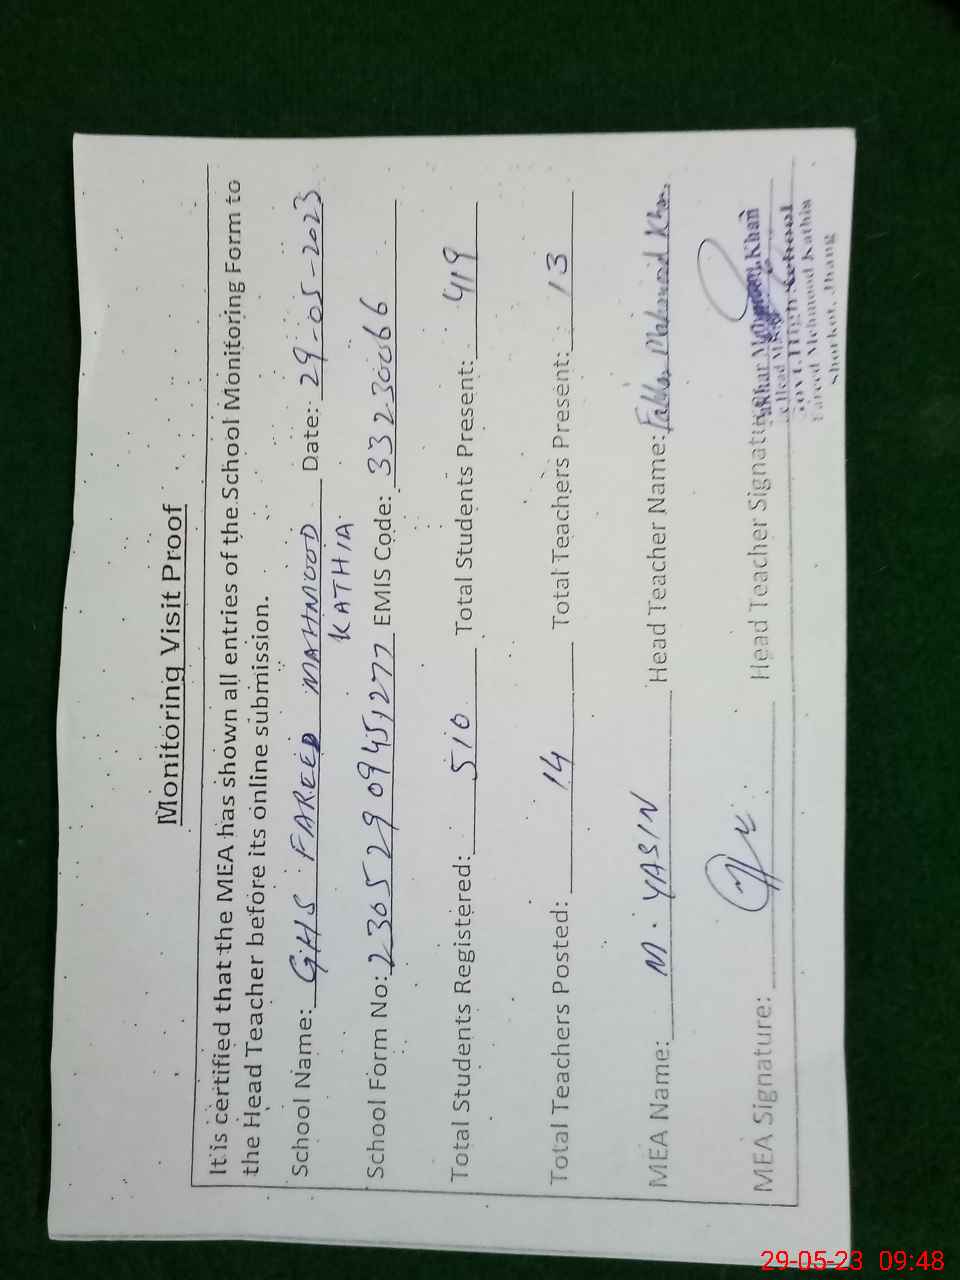 Monitoring Visit Proof
It is certified that the MEA has shown all entries of the School Monitoring Form to
the Head Teacher before its online submission.
School Name: GHS FAREED MAHMOOD Date: 29-05-2023
KATHIA
School Form No: 23052909451277 EMIS Code: 33230066
Total Students Registered: 510 Total Students Present: 419
Total Teachers Posted: 14 Total Teachers Present: 13
MEA Name: M. YASIN Head Teacher Name: Fakhar Mahmood Khan
MEA Signature: Head Teacher Signature
Khan
Head
Govt. High School
Fareed Mehmood Kathia
Shorkot, Jhang
29-05-23 09:48